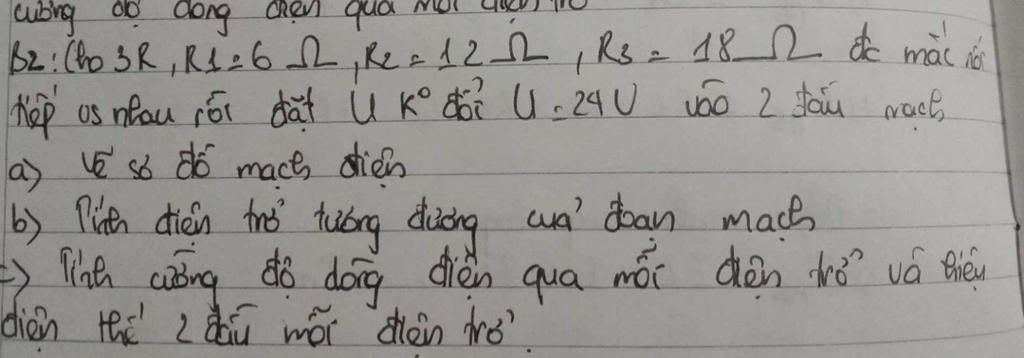 cường độ dòng điện qua mỗi điện trở
B2: Cho 3R, R1 = 6 Ω, R2 = 12 Ω, R3 = 18 Ω đc mắc nối
tiếp vs nhau rồi đặt U Kº đổi U = 24V vào 2 đầu mạch
a) vẽ sơ đồ mạch điện
b) Tính điện trở tương đương của đoạn mạch
c) Tính cường độ dòng điện qua mỗi điện trở và hiệu
điện thế 2 đầu mỗi điện trở